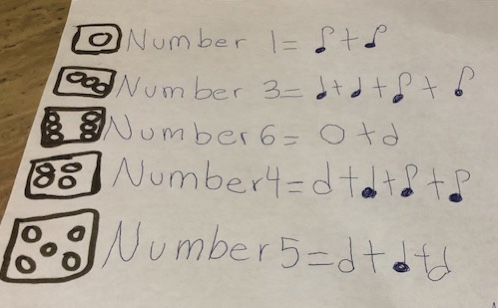 Number 1= ♪+♪
Number 3= ♩+♩+♪+♪
Number 6= 𝅝+𝅗𝅥
Number 4=𝅗𝅥+♩+♪+♪
Number 5=𝅗𝅥+♩+𝅗𝅥